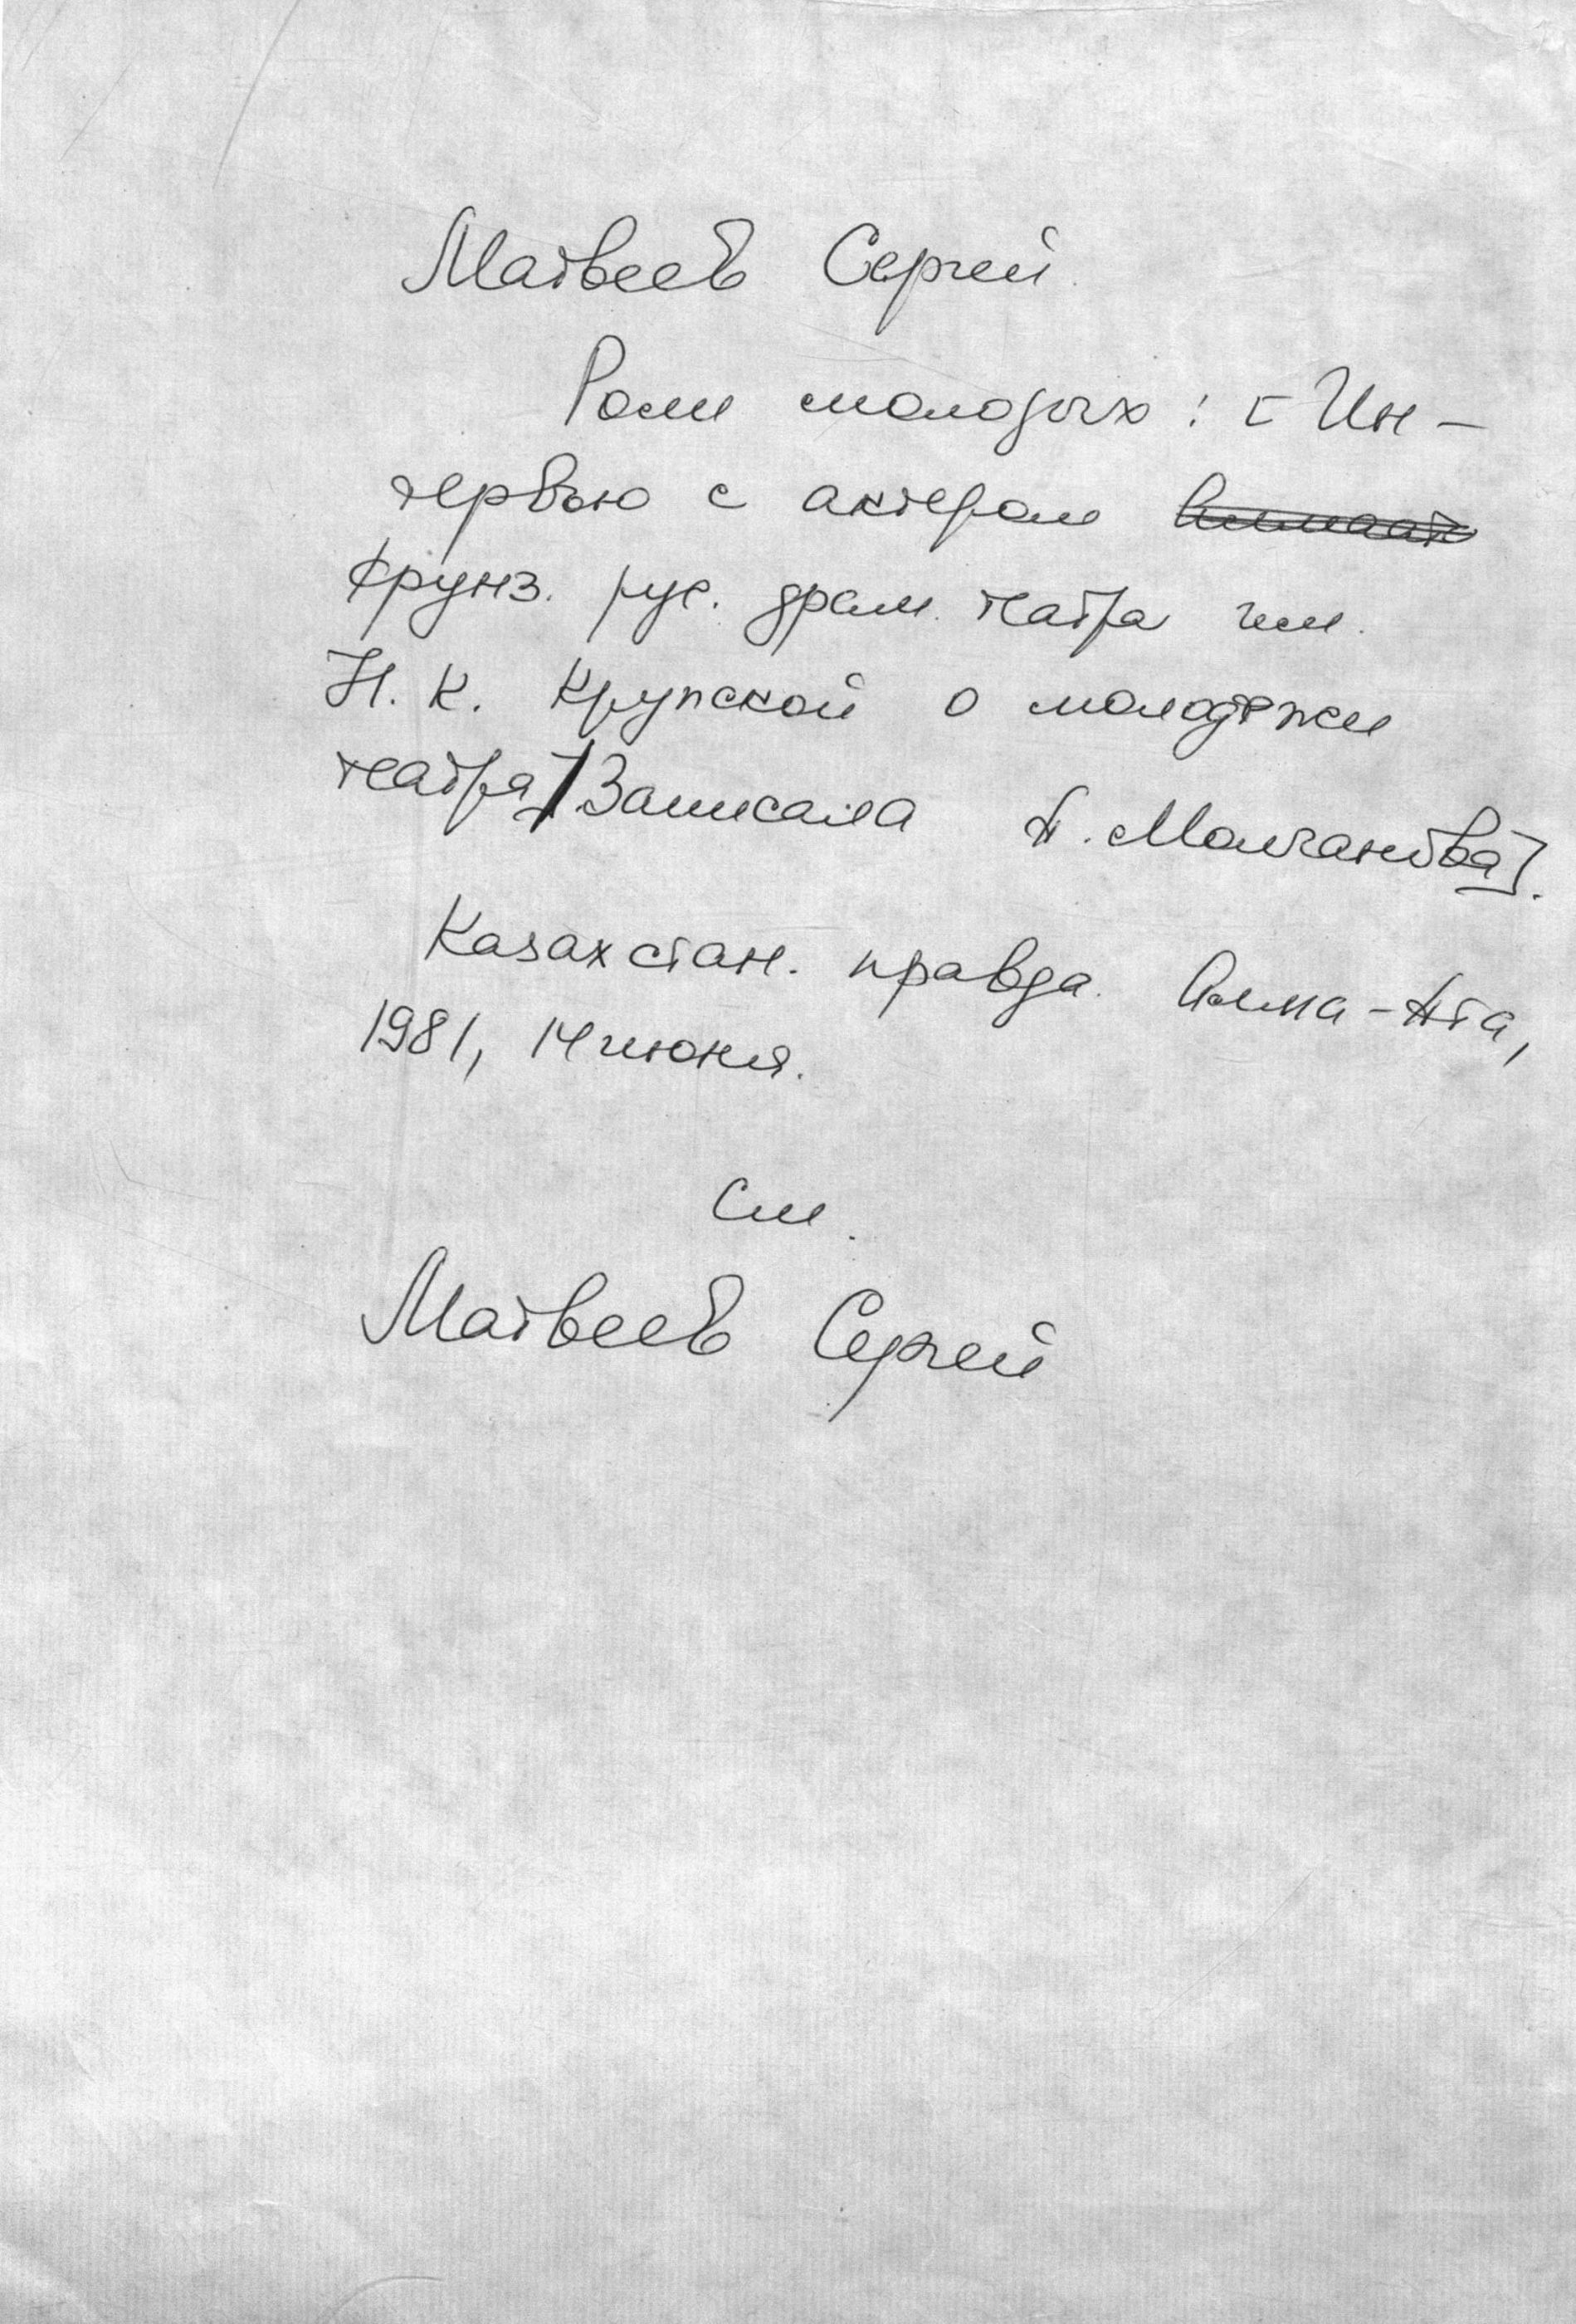 Матвеев Сергей.
Роли молодых: [Ин-
тервью с актером
Фрунз. рус. драм. театра им.
Н. К. Крупской о молодежи
театра / Записала А. Молчанова].
Казахстан. правда. Алма-Ата,
1981, 14 июня.
См.
Матвеев Сергей